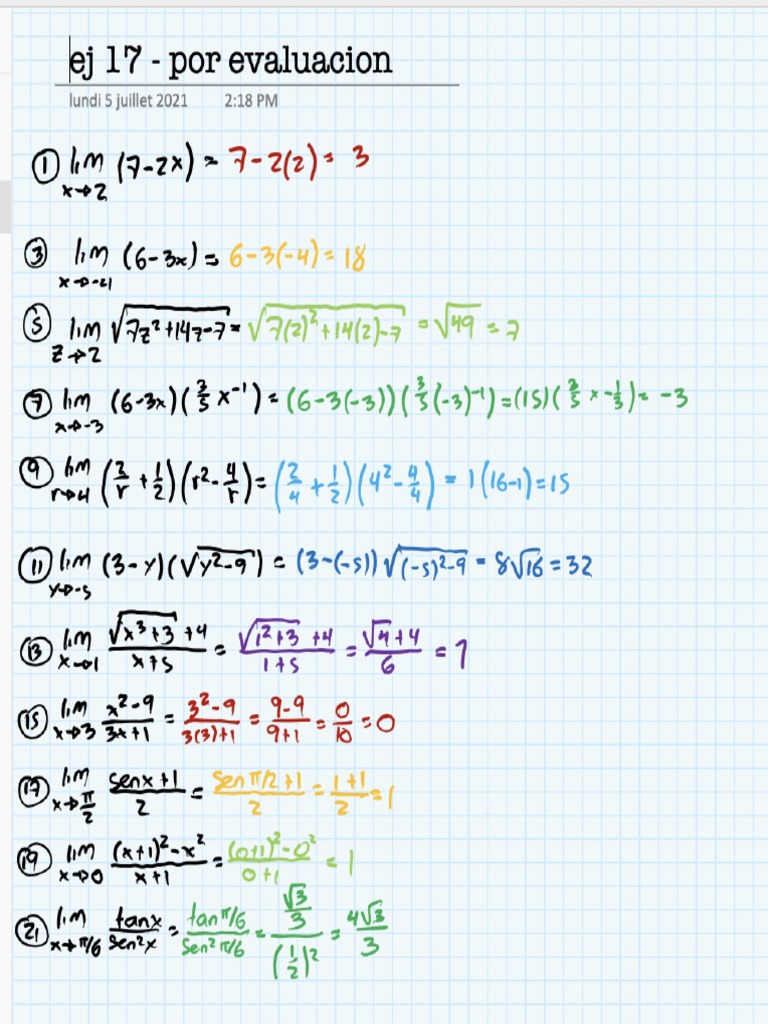 ej 17 - por evaluacion
lundi 5 juillet 2021 2:18 PM
① lim x→2 (7-2x) = 7-2(2) = 3
③ lim x→-4 (6-3x) = 6-3(-4) = 18
⑤ lim z→2 √(7z²+14z-7) = √(7(2)²+14(2)-7) = √49 = 7
⑦ lim x→-3 (6-3x)(3/5 x⁻¹) = (6-3(-3))(3/5(-3)⁻¹) = (15)(3/5 x -1/3) = -3
⑨ lim r→4 (2/r + 1/2)(r² - 4/r) = (2/4 + 1/2)(4² - 4/4) = 1(16-1) = 15
⑪ lim y→-5 (3-y)(√(y²-9)) = (3-(-5))√((-5)²-9) = 8√16 = 32
⑬ lim x→1 (√(x³+3) +4)/(x+5) = (√(1²+3) +4)/(1+5) = (√4+4)/6 = 1
⑮ lim x→3 (x²-9)/(3x+1) = (3²-9)/(3(3)+1) = (9-9)/(9+1) = 0/10 = 0
⑰ lim x→π/2 (senx+1)/2 = (sen π/2+1)/2 = (1+1)/2 = 1
⑲ lim x→0 ((x+1)²-x²)/(x+1) = ((0+1)²-0²)/(0+1) = 1
㉑ lim x→π/6 tanx/sen²x = tanπ/6/sen²π/6 = (√3/3)/(1/2)² = 4√3/3